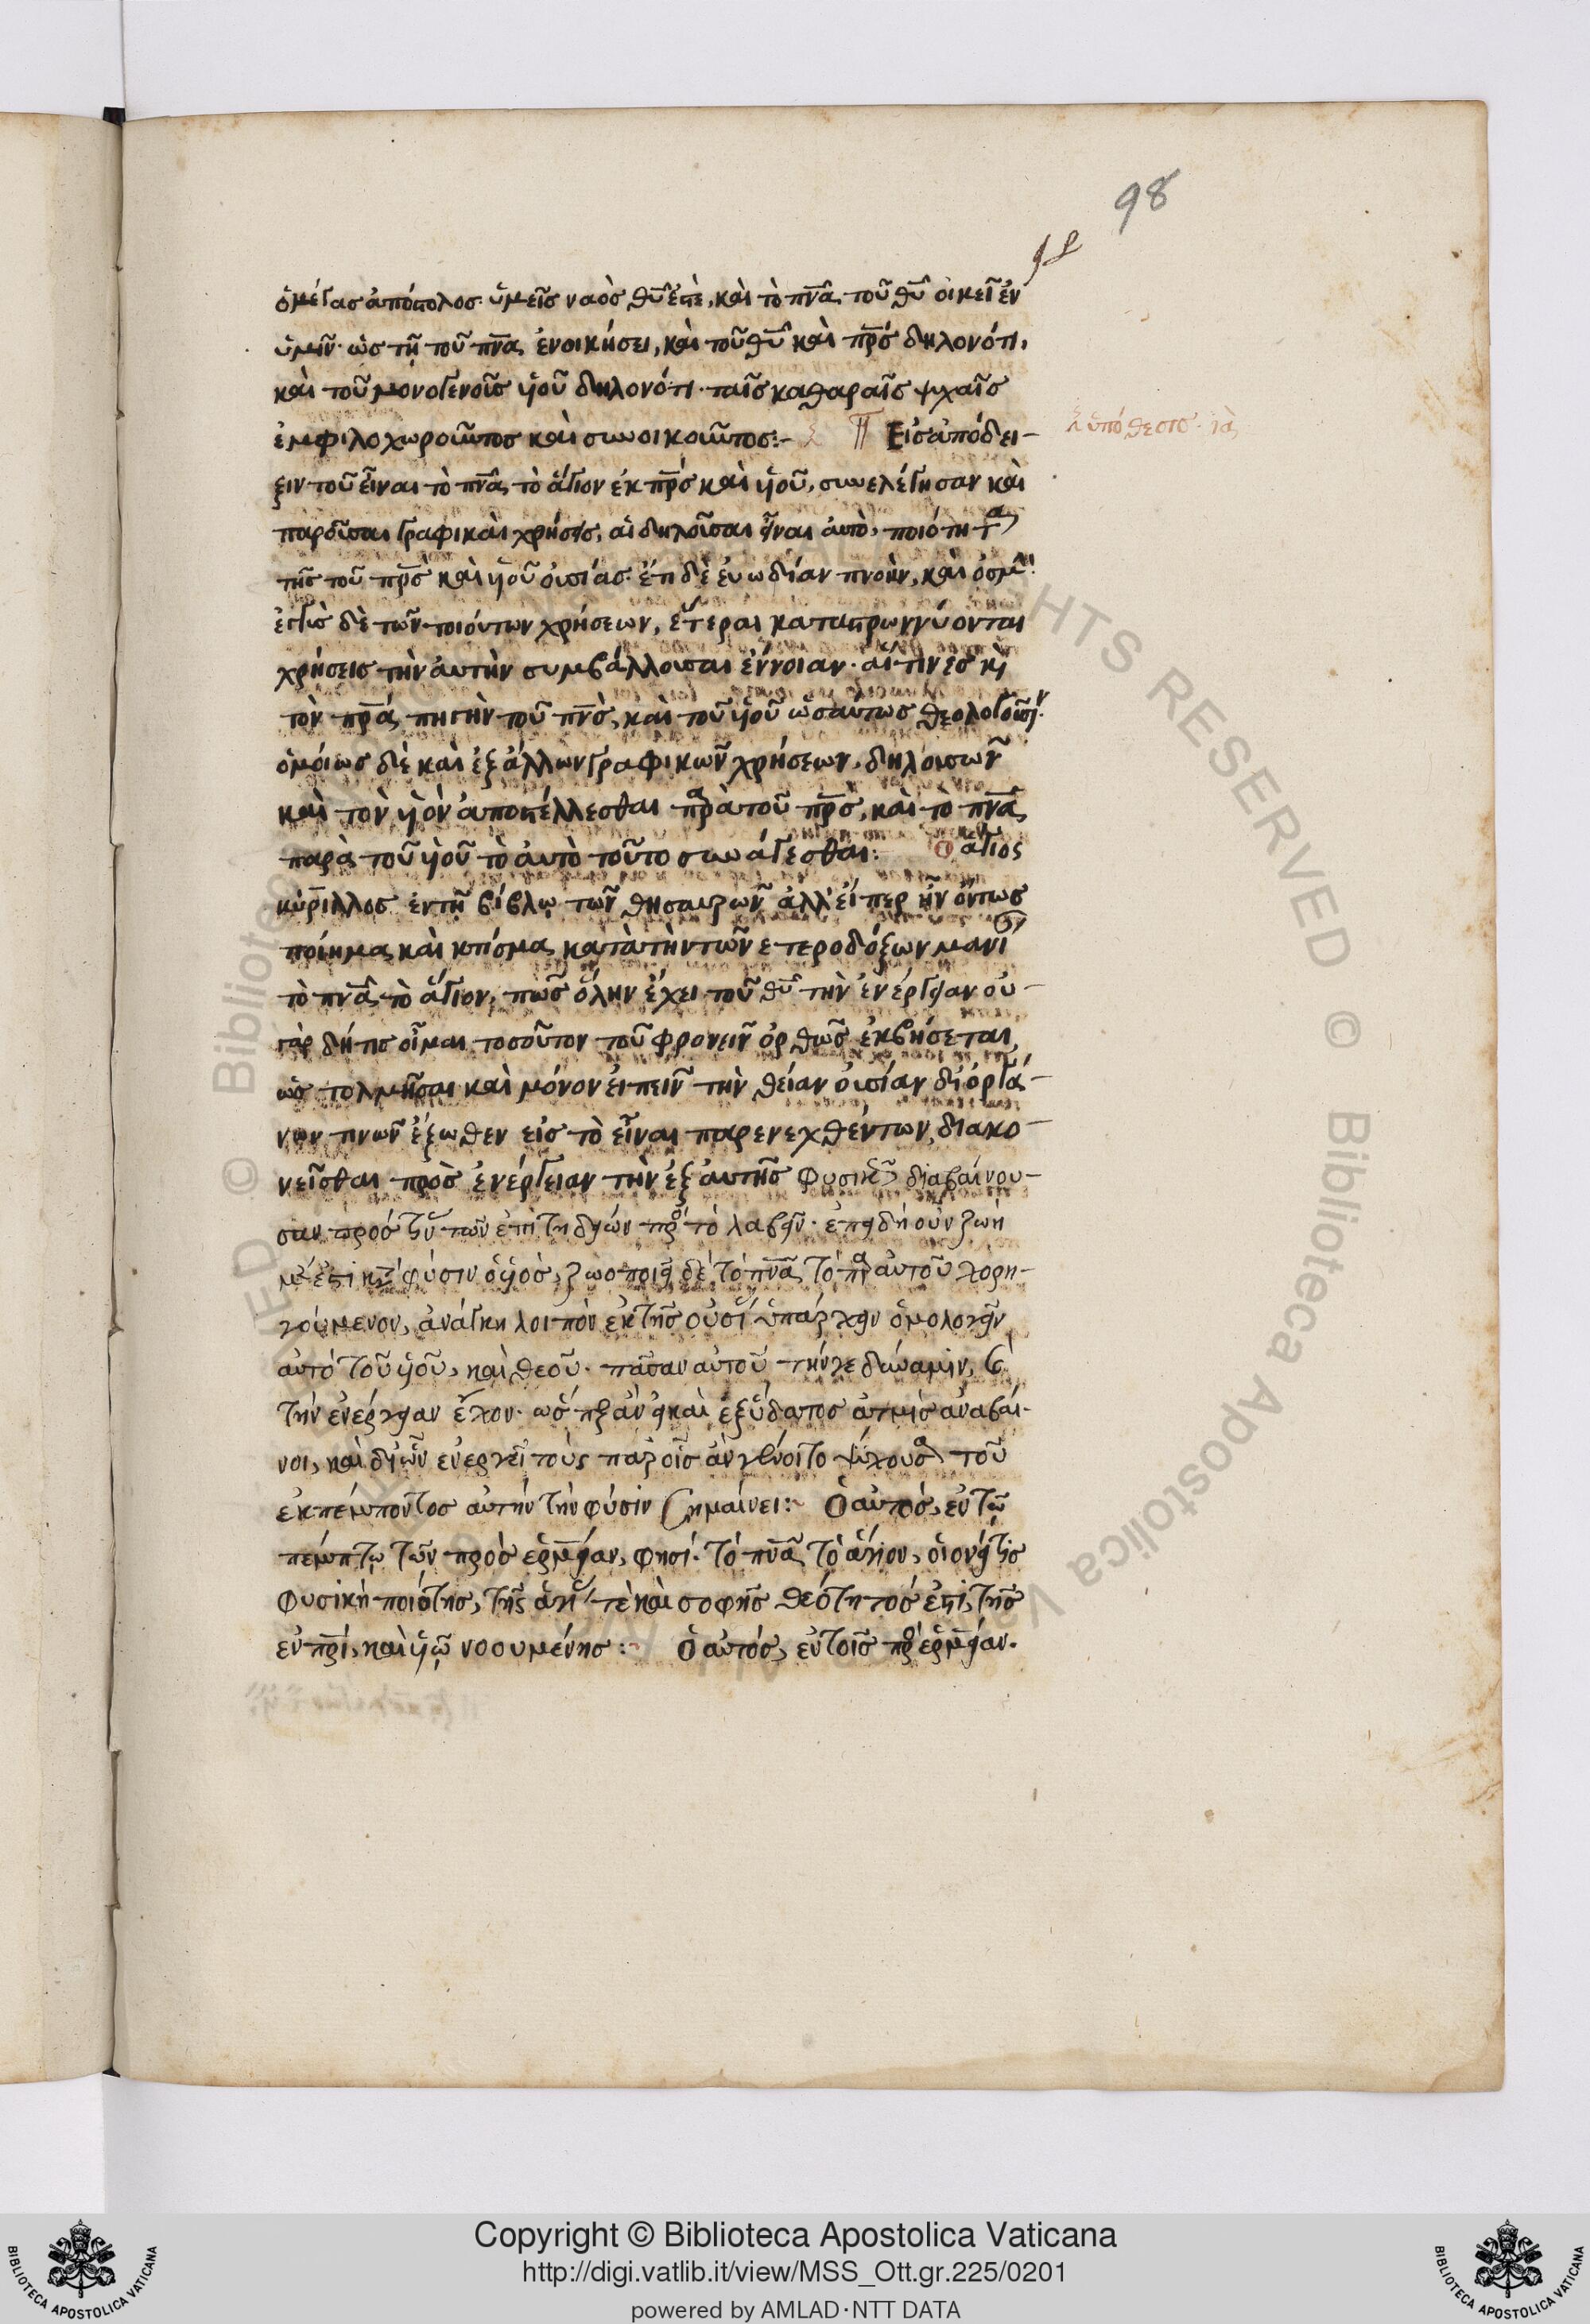 98
ὁ μέγας ἀπόστολος· ὑμεῖς ναὸς θῦ ἐστὲ, καὶ τὸ πνᾶ τοῦ θῦ οἰκεῖ ἐν
ὑμῖν· ὡς τῇ τοῦ πνς ἐνοικήσει, καὶ τοῦ θῦ καὶ πρς δηλονότι,
καὶ τοῦ μονογενοῦς ὑοῦ δηλονότι· ταῖς καθαραῖς ψυχαῖς
ἐμφιλοχωροῦντος καὶ συνοικοῦντος:- Εἰς ἀπόδει-
ὑπόθεσις· ια
ξιν τοῦ εἶναι τὸ πνᾶ τὸ ἅγιον ἐκ πρς καὶ ὑοῦ, συνελέγησαν καὶ
παροῦσαι γραφικαὶ χρήσεις, αἱ δηλοῦσαι εἶναι αὐτὸ, ποιότητα
τῆς τοῦ πρς καὶ ὑοῦ οὐσίας· ἔτι δὲ εὐωδίαν πνοὴν, καὶ ὀσμὴν·
ἐγγὺς δὲ τῶν τοιούτων χρήσεων, ἕτεραι καταστρωννύονται
χρήσεις τὴν αὐτὴν συμβάλλουσαι ἔννοιαν· αἵτινες καὶ
τὸν πρα πηγὴν τοῦ πνς, καὶ τοῦ ὑοῦ ὡσαύτως θεολογοῦσιν·
ὁμοίως δὲ καὶ ἐξ ἄλλων γραφικῶν χρήσεων, δηλουσῶν
καὶ τὸν ὑὸν ἀποστέλλεσθαι παρὰ τοῦ πρς, καὶ τὸ πνᾶ
παρὰ τοῦ ὑοῦ τὸ αὐτὸ τοῦτο συνάγεσθαι: Ὁ ἅγιος
κύριλλος ἐν τῇ βίβλῳ τῶν θησαυρῶν ἀλλ' εἴπερ ἦν ὄντως
ποίημα καὶ κτίσμα κατὰ τὴν τῶν ἑτεροδόξων μανίαν
τὸ πνᾶ τὸ ἅγιον, πῶς ὅλην ἔχει τοῦ θῦ τὴν ἐνέργειαν οὐ-
γὰρ δήτις οἶμαι τοσοῦτον τοῦ φρονεῖν ὀρθῶς ἐκβήσεται,
ὡς τολμῆσαι καὶ μόνον εἰπεῖν τὴν θείαν οὐσίαν δι' ὀργά-
νων τινῶν ἔξωθεν εἰς τὸ εἶναι παρενεχθέντων, διακο-
νεῖσθαι πρὸς ἐνέργειαν τὴν ἐξ αὐτῆς φυσικῶς διαβαίνου-
σαν πρὸς τῶν ἐπιτηδείων πρὸς τὸ λαβεῖν· ἐπειδὴ οὖν ζωὴ
μέν ἐστι κατὰ φύσιν ὁ ὑὸς, ζωοποιεῖ δὲ τὸ πνᾶ τὸ παρ' αὐτοῦ χορη-
γούμενον, ἀνάγκη λοιπὸν ἐκ τῆς οὐσίας ὑπάρχειν ὁμολογεῖν
αὐτὸ τοῦ ὑοῦ, καὶ θεοῦ· πᾶσαν αὐτοῦ τήν γε δύναμιν, καὶ
τὴν ἐνέργειαν ἔχον· ὥσπερ ἂν εἰ καὶ ἐξ ὕδατος ἀτμὶς ἀναβαί-
νοι, καὶ δι' ὧν ἐνεργεῖ τοὺς παρ' οἷς ἂν γένοιτο ψύχουσα τοῦ
ἐκπέμποντος αὐτὴν τὴν φύσιν σημαίνει:~ Ὁ αὐτὸς, ἐν τῷ
πέμπτῳ τῶν πρὸς ἑρμείαν, φησί· τὸ πνᾶ τὸ ἅγιον, οἱονεί τις
φυσικὴ ποιότης, τῆς ἁγίας τὲ καὶ σοφῆς θεότητός ἐστι, τῆς
ἐν πρι, καὶ ὑῷ νοουμένης:~ Ὁ αὐτὸς, ἐν τοῖς πρὸς ἑρμείαν·
© Biblioteca Apostolica Vaticana
ALL RIGHTS RESERVED
Copyright © Biblioteca Apostolica Vaticana
http://digi.vatlib.it/view/MSS_Ott.gr.225/0201
powered by AMLAD·NTT DATA
BIBLIOTECA APOSTOLICA VATICANA
BIBLIOTECA APOSTOLICA VATICANA